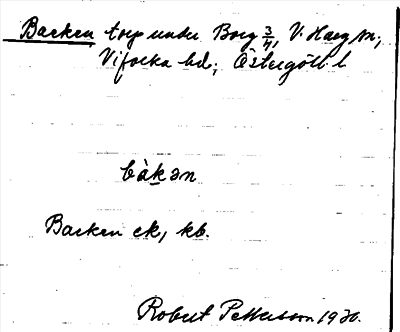 Backen torp under Borg 3/4, V. Harg sn,
Vifolka hd, Östergötl. l
bàkən
Backen ek, kb.
Robert Pettersson 1930.